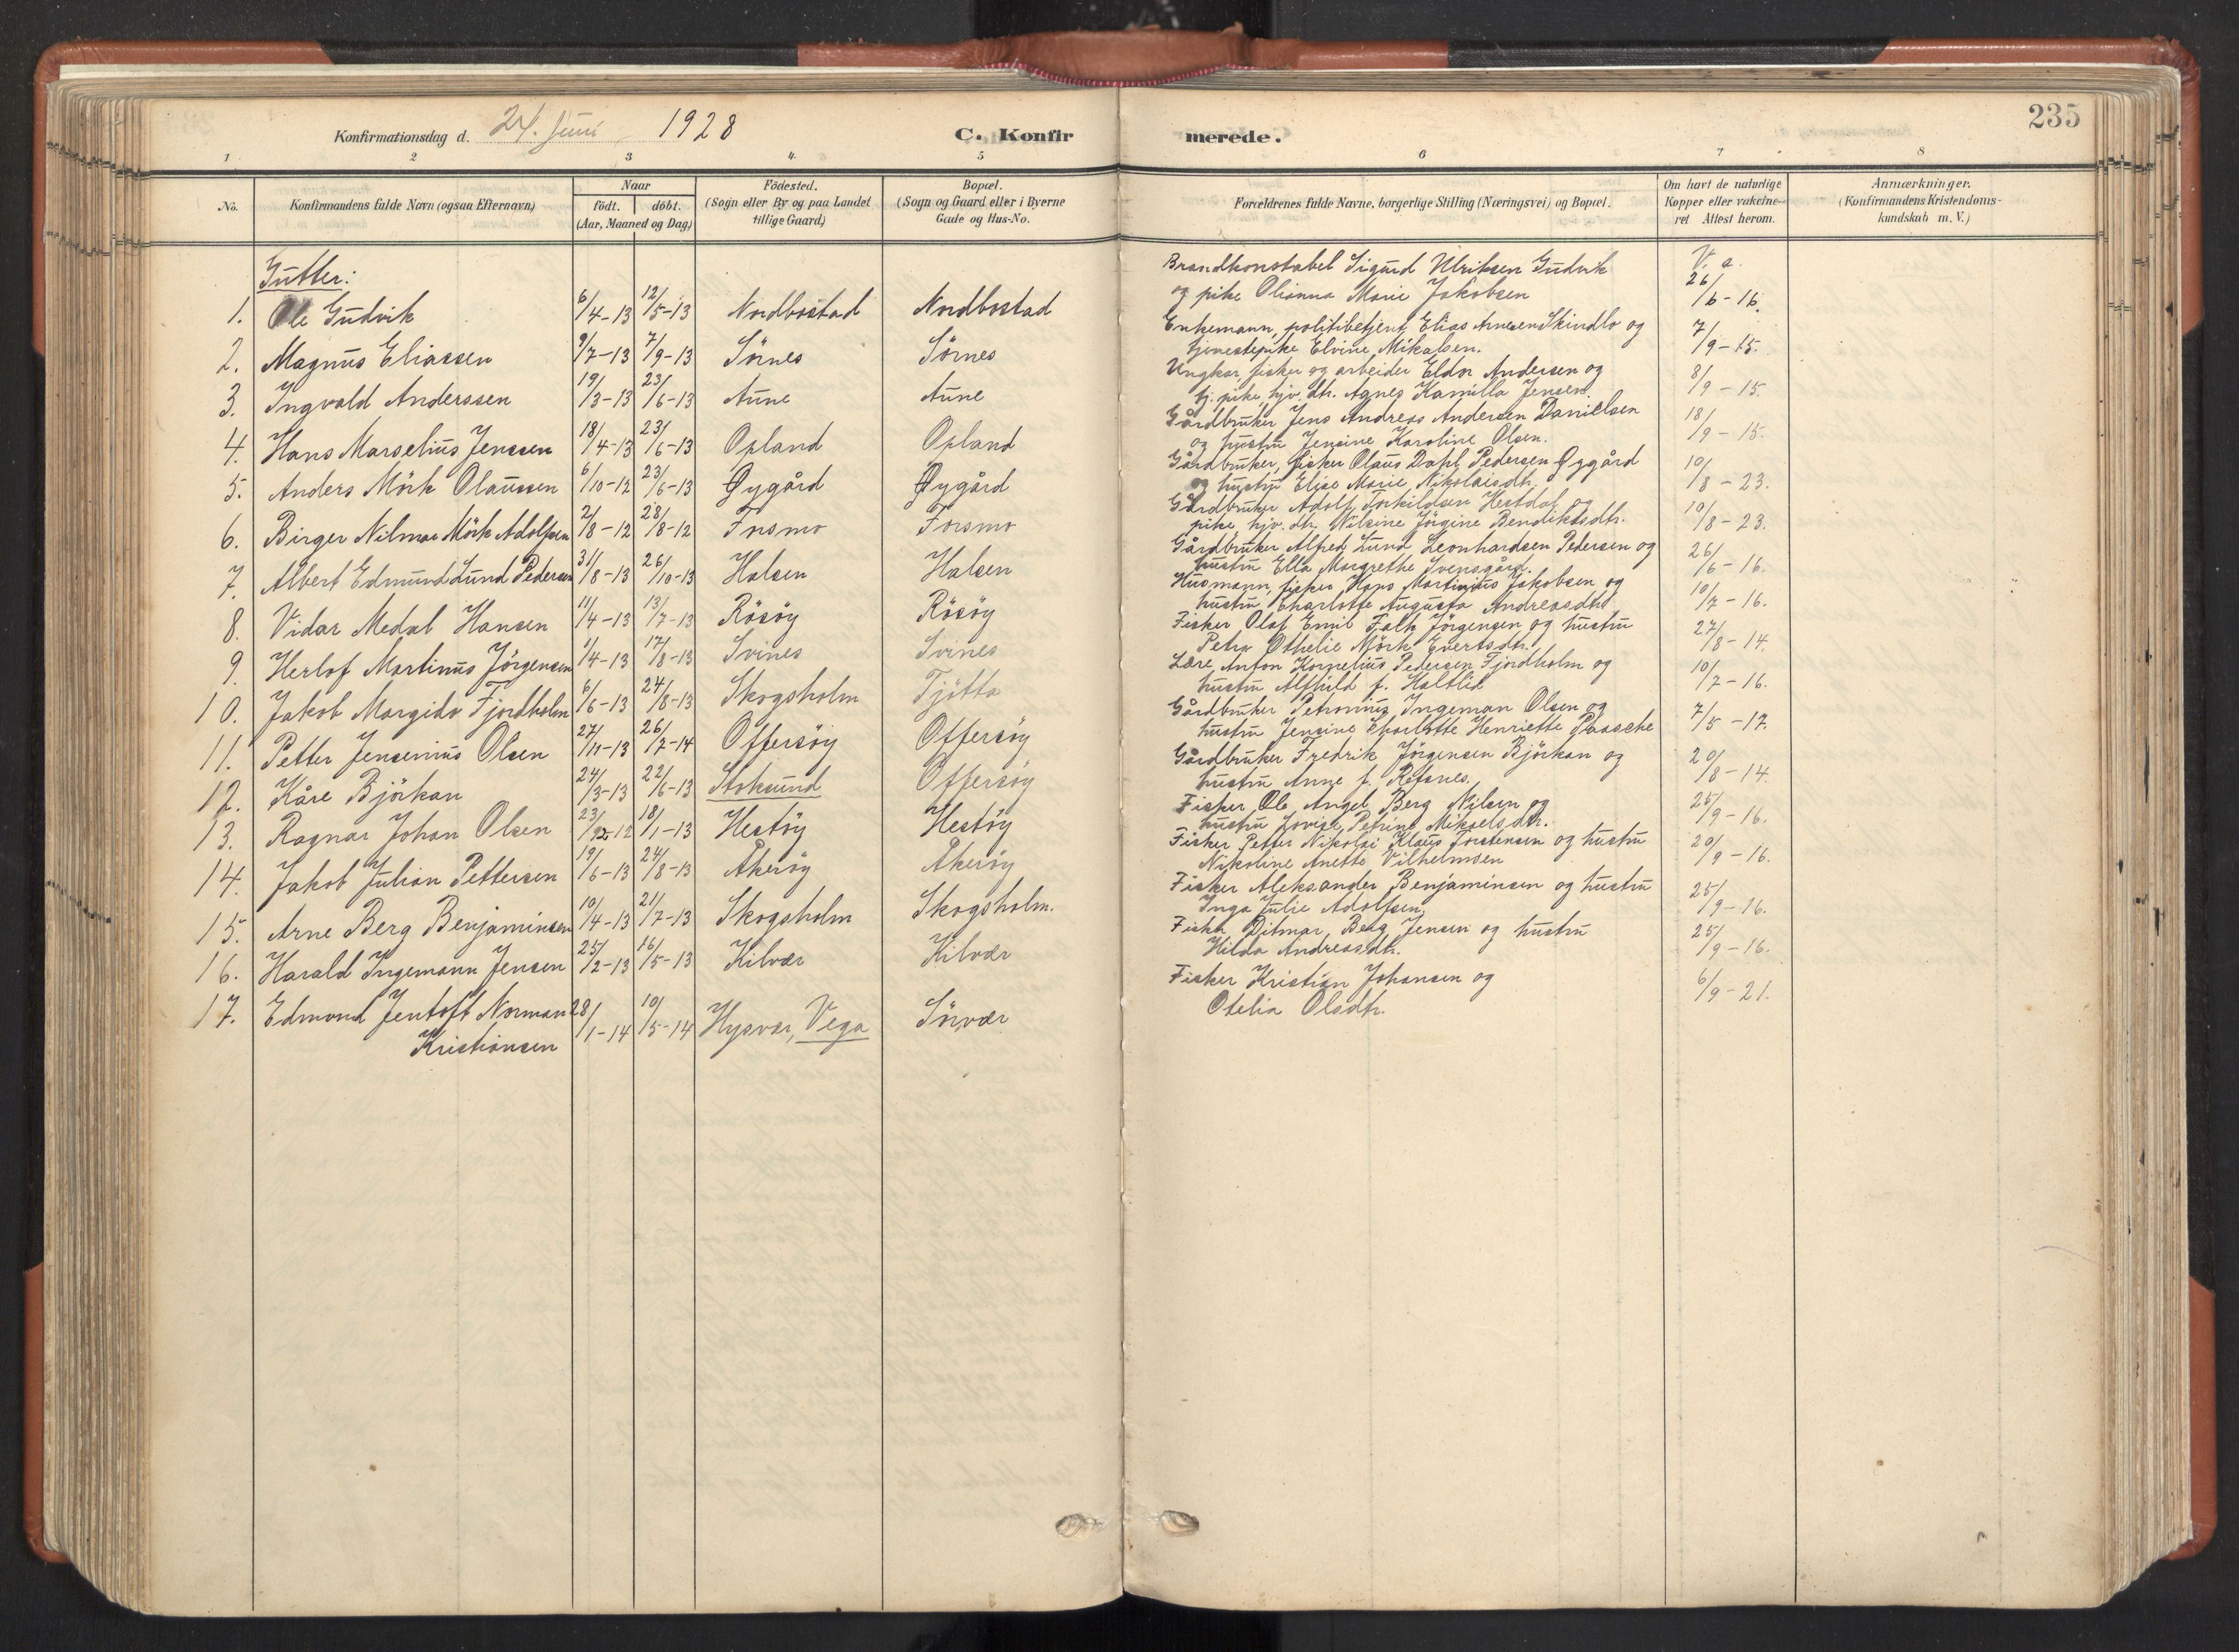 235
Konfirmationsdag d. 24. Juni 1928
C. Konfirmerede.
1 2 3 4 5 6 7 8
No.
Konfirmandens fulde Navn (ogsaa Efternavn)
Naar
födt. döbt.
(Aar, Maaned og Dag)
Födested.
(Sogn eller By og paa Landet
tillige Gaard)
Bopæl.
(Sogn og Gaard eller i Byerne
Gade og Hus-No.
Forældrenes fulde Navne, borgerlige Stilling (Næringsvei) og Bopæl.
Om havt de naturlige
Kopper eller vakcine-
ret. Attest herom.
Anmærkninger.
(Konfirmandens Kristendoms-
kundskab m. V.)
Gutter:
V. a.
1. Ole Gudvik 6/4-13 12/5-13 Nordbostad Nordbostad
Brandkonstabel Sigurd Ulriksen Gudvik
og pike Olianna Marie Jakobsen 26/6-16.
2. Magnus Eliassen 9/7-13 7/9-13 Sörnes Sörnes
Enkemann, politibetjent Elias Arnesen Skindlo og
tjenestepike Elvine Mikalsen. 7/9-15.
3. Ingvald Anderssen 19/3-13 23/6-13 Aune Aune
Ungkar, fisker og arbeider Eldor Andersen og
tj. pike, hjv. dtr. Agnes Kamilla Jensen. 8/9-15.
4. Hans Marselius Jenssen 18/4-13 23/6-13 Opland Opland
Gårdbruker Jens Andreas Andersen Danielsen
og hustru Jensine Karoline Olsen. 18/9-15.
5. Anders Mörk Olaussen 6/10-12 23/6-13 Øygård Øygård
Gårdbruker, fisker Olaus Dahl Pedersen Øygård
og hustru Elise Marie Nikolaisdtr. 10/8-23.
6. Birger Nilmar Mörk Adolfsen 2/8-12 28/8-12 Forsmo Forsmo
Gårdbruker Adolf Torkildsen Hestdal og
pike, hjv. dtr. Nilsine Jörgine Bendiktsdtr. 10/8-23.
7. Albert Edmund Lund Pedersen 31/8-13 26/10-13 Halsen Halsen
Gårdbruker Alfred Lund Leonhardsen Pedersen og
hustru Ella Margrethe Svensgård. 26/6-16.
8. Vidar Medal Hansen 11/4-13 13/7-13 Rösöy Rösöy
Husmann, fisker Hans Martinius Jakobsen og
hustru Charlotte Augusta Andreasdtr. 10/7-16.
9. Herlof Martinus Jörgensen 1/4-13 17/8-13 Svines Svines
Fisker Olaf Emil Falk Jörgensen og hustru
Petra Othelie Mörk Evertsdtr. 27/8-14.
10. Jakob Margido Fjordholm 6/6-13 24/8-13 Skogsholm Tjötta
Lære Anton Kornelius Pedersen Fjordholm og
hustru Alfhild f. Haltlid 10/7-16.
11. Petter Jensenius Olsen 27/11-13 26/7-14 Offersöy Offersöy
Gårdbruker Petronius Ingeman Olsen og
hustru Jensine Charlotte Henriette Paasche 7/5-17.
12. Kåre Björkan 24/3-13 22/6-13 Stoksund Offersöy
Gårdbruker Fredrik Jörgensen Björkan og
hustru Anne f. Refsnes. 20/8-14.
13. Ragnar Johan Olsen 23/12-12 18/1-13 Hestöy Hestöy
Fisker Ole Angel Berg Nilsen og
hustru Lovise Petrine Mikaelsdtr. 25/9-16.
14. Jakob Julian Pettersen 19/6-13 24/8-13 Åkeröy Åkeröy
Fisker Petter Nikolai Klaus Torstensen og hustru
Nikoline Anette Vilhelmsen 20/9-16.
15. Arne Berg Benjaminsen 10/4-13 21/7-13 Skogsholm Skogsholm.
Fisker Aleksander Benjaminsen og hustru
Inga Julie Adolfsen 25/9-16.
16. Harald Ingemann Jensen 25/2-13 16/5-13 Kilvær Kilvær
Fisker Ditmar Berg Jensen og hustru
Hilda Andreasdtr. 25/9-16.
17. Edmond Jentoft Norman
Kristiansen 28/1-14 10/5-14 Hysvær, Vega Sörvær
Fisker Kristian Johansen og
Otelia Olsdtr. 6/9-21.